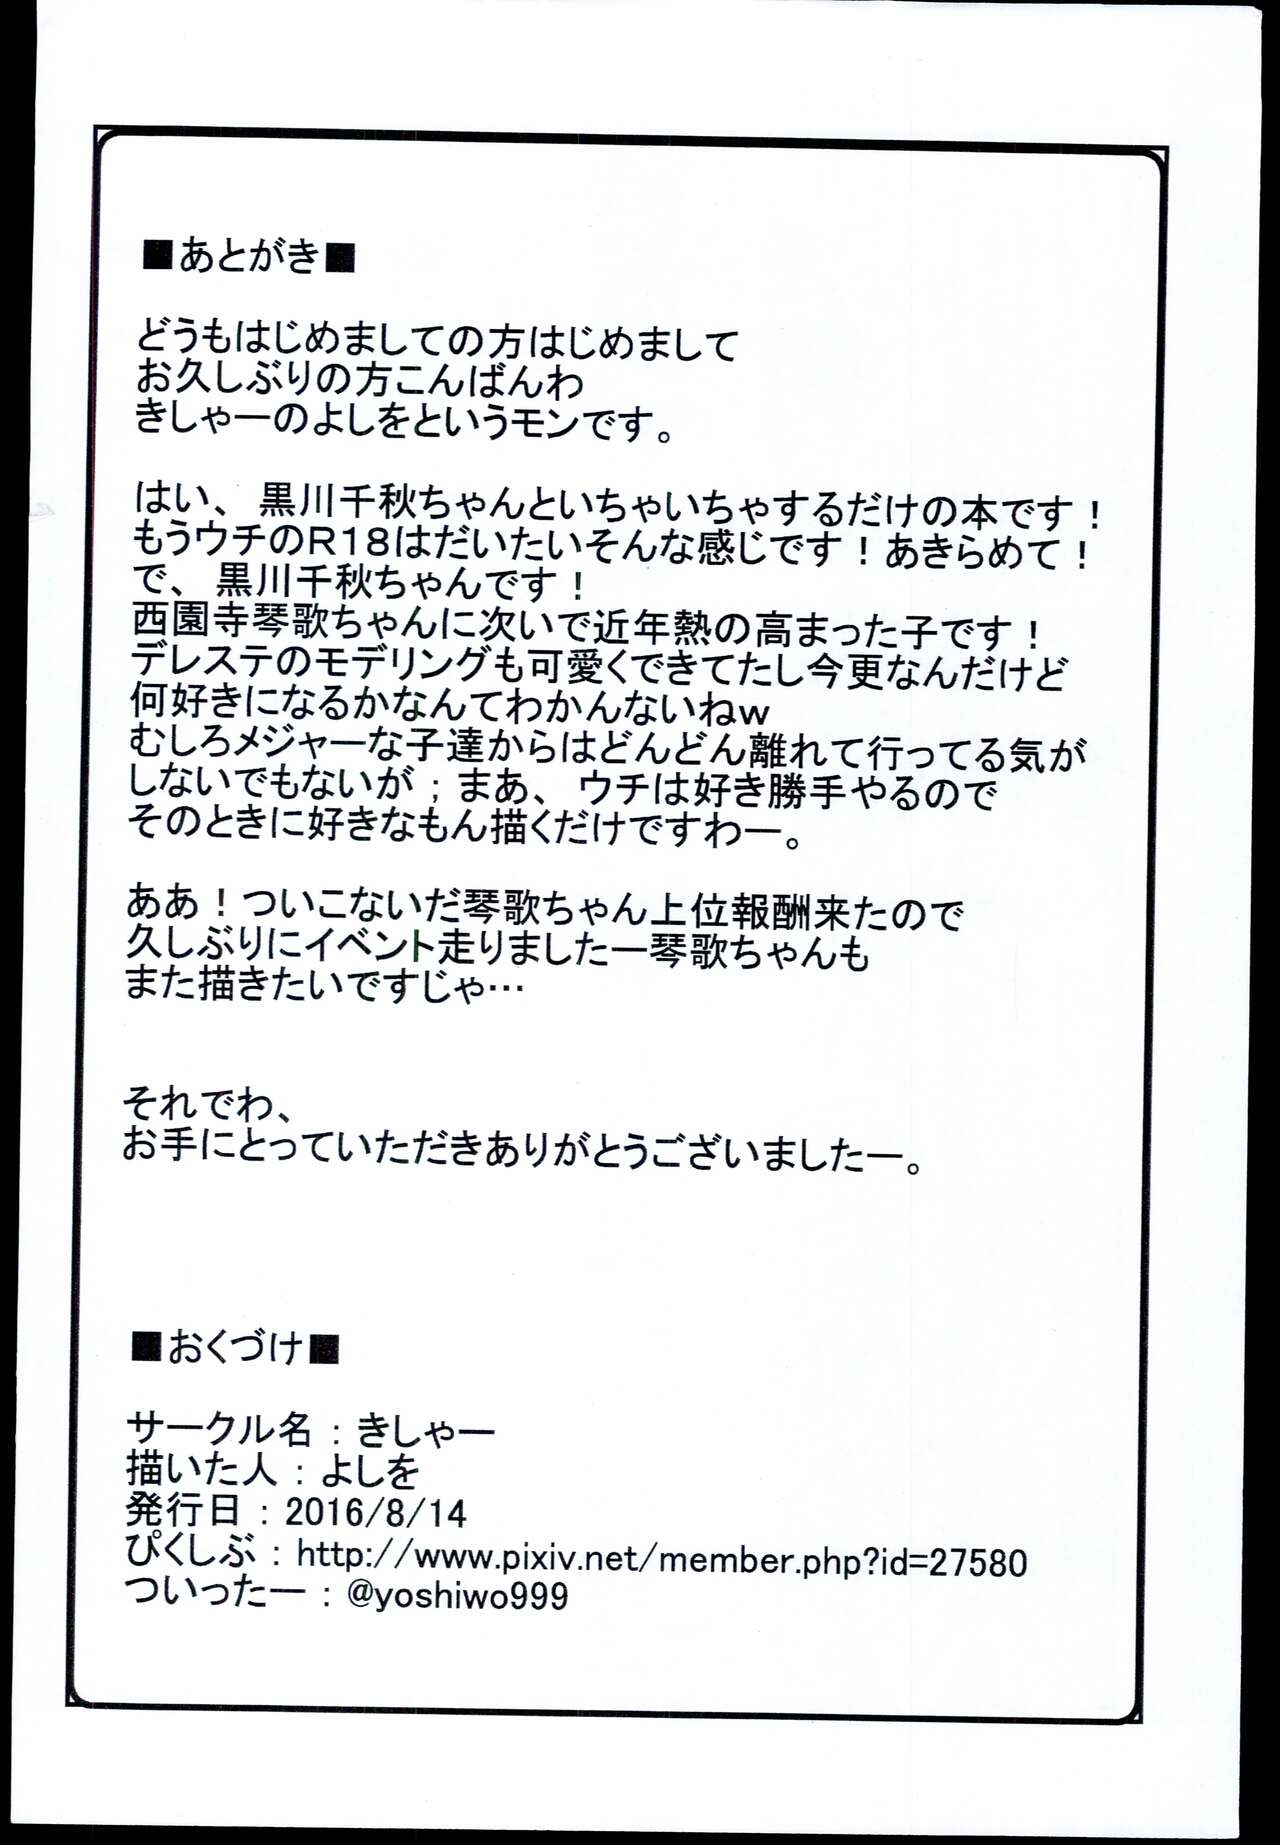 ■あとがき■
どうもはじめましての方はじめまして
お久しぶりの方こんばんわ
きしゃーのよしをというモンです。
はい、黒川千秋ちゃんといちゃいちゃするだけの本です！
もうウチのＲ１８はだいたいそんな感じです！あきらめて！
で、黒川千秋ちゃんです！
西園寺琴歌ちゃんに次いで近年熱の高まった子です！
デレステのモデリングも可愛くできてたし今更なんだけど
何好きになるかなんてわかんないねｗ
むしろメジャーな子達からはどんどん離れて行ってる気が
しないでもないが；まあ、ウチは好き勝手やるので
そのときに好きなもん描くだけですわー。
ああ！ついこないだ琴歌ちゃん上位報酬来たので
久しぶりにイベント走りましたー琴歌ちゃんも
また描きたいですじゃ…
それでわ、
お手にとっていただきありがとうございましたー。
■おくづけ■
サークル名：きしゃー
描いた人：よしを
発行日：2016/8/14
ぴくしぶ：http://www.pixiv.net/member.php?id=27580
ついったー：@yoshiwo999